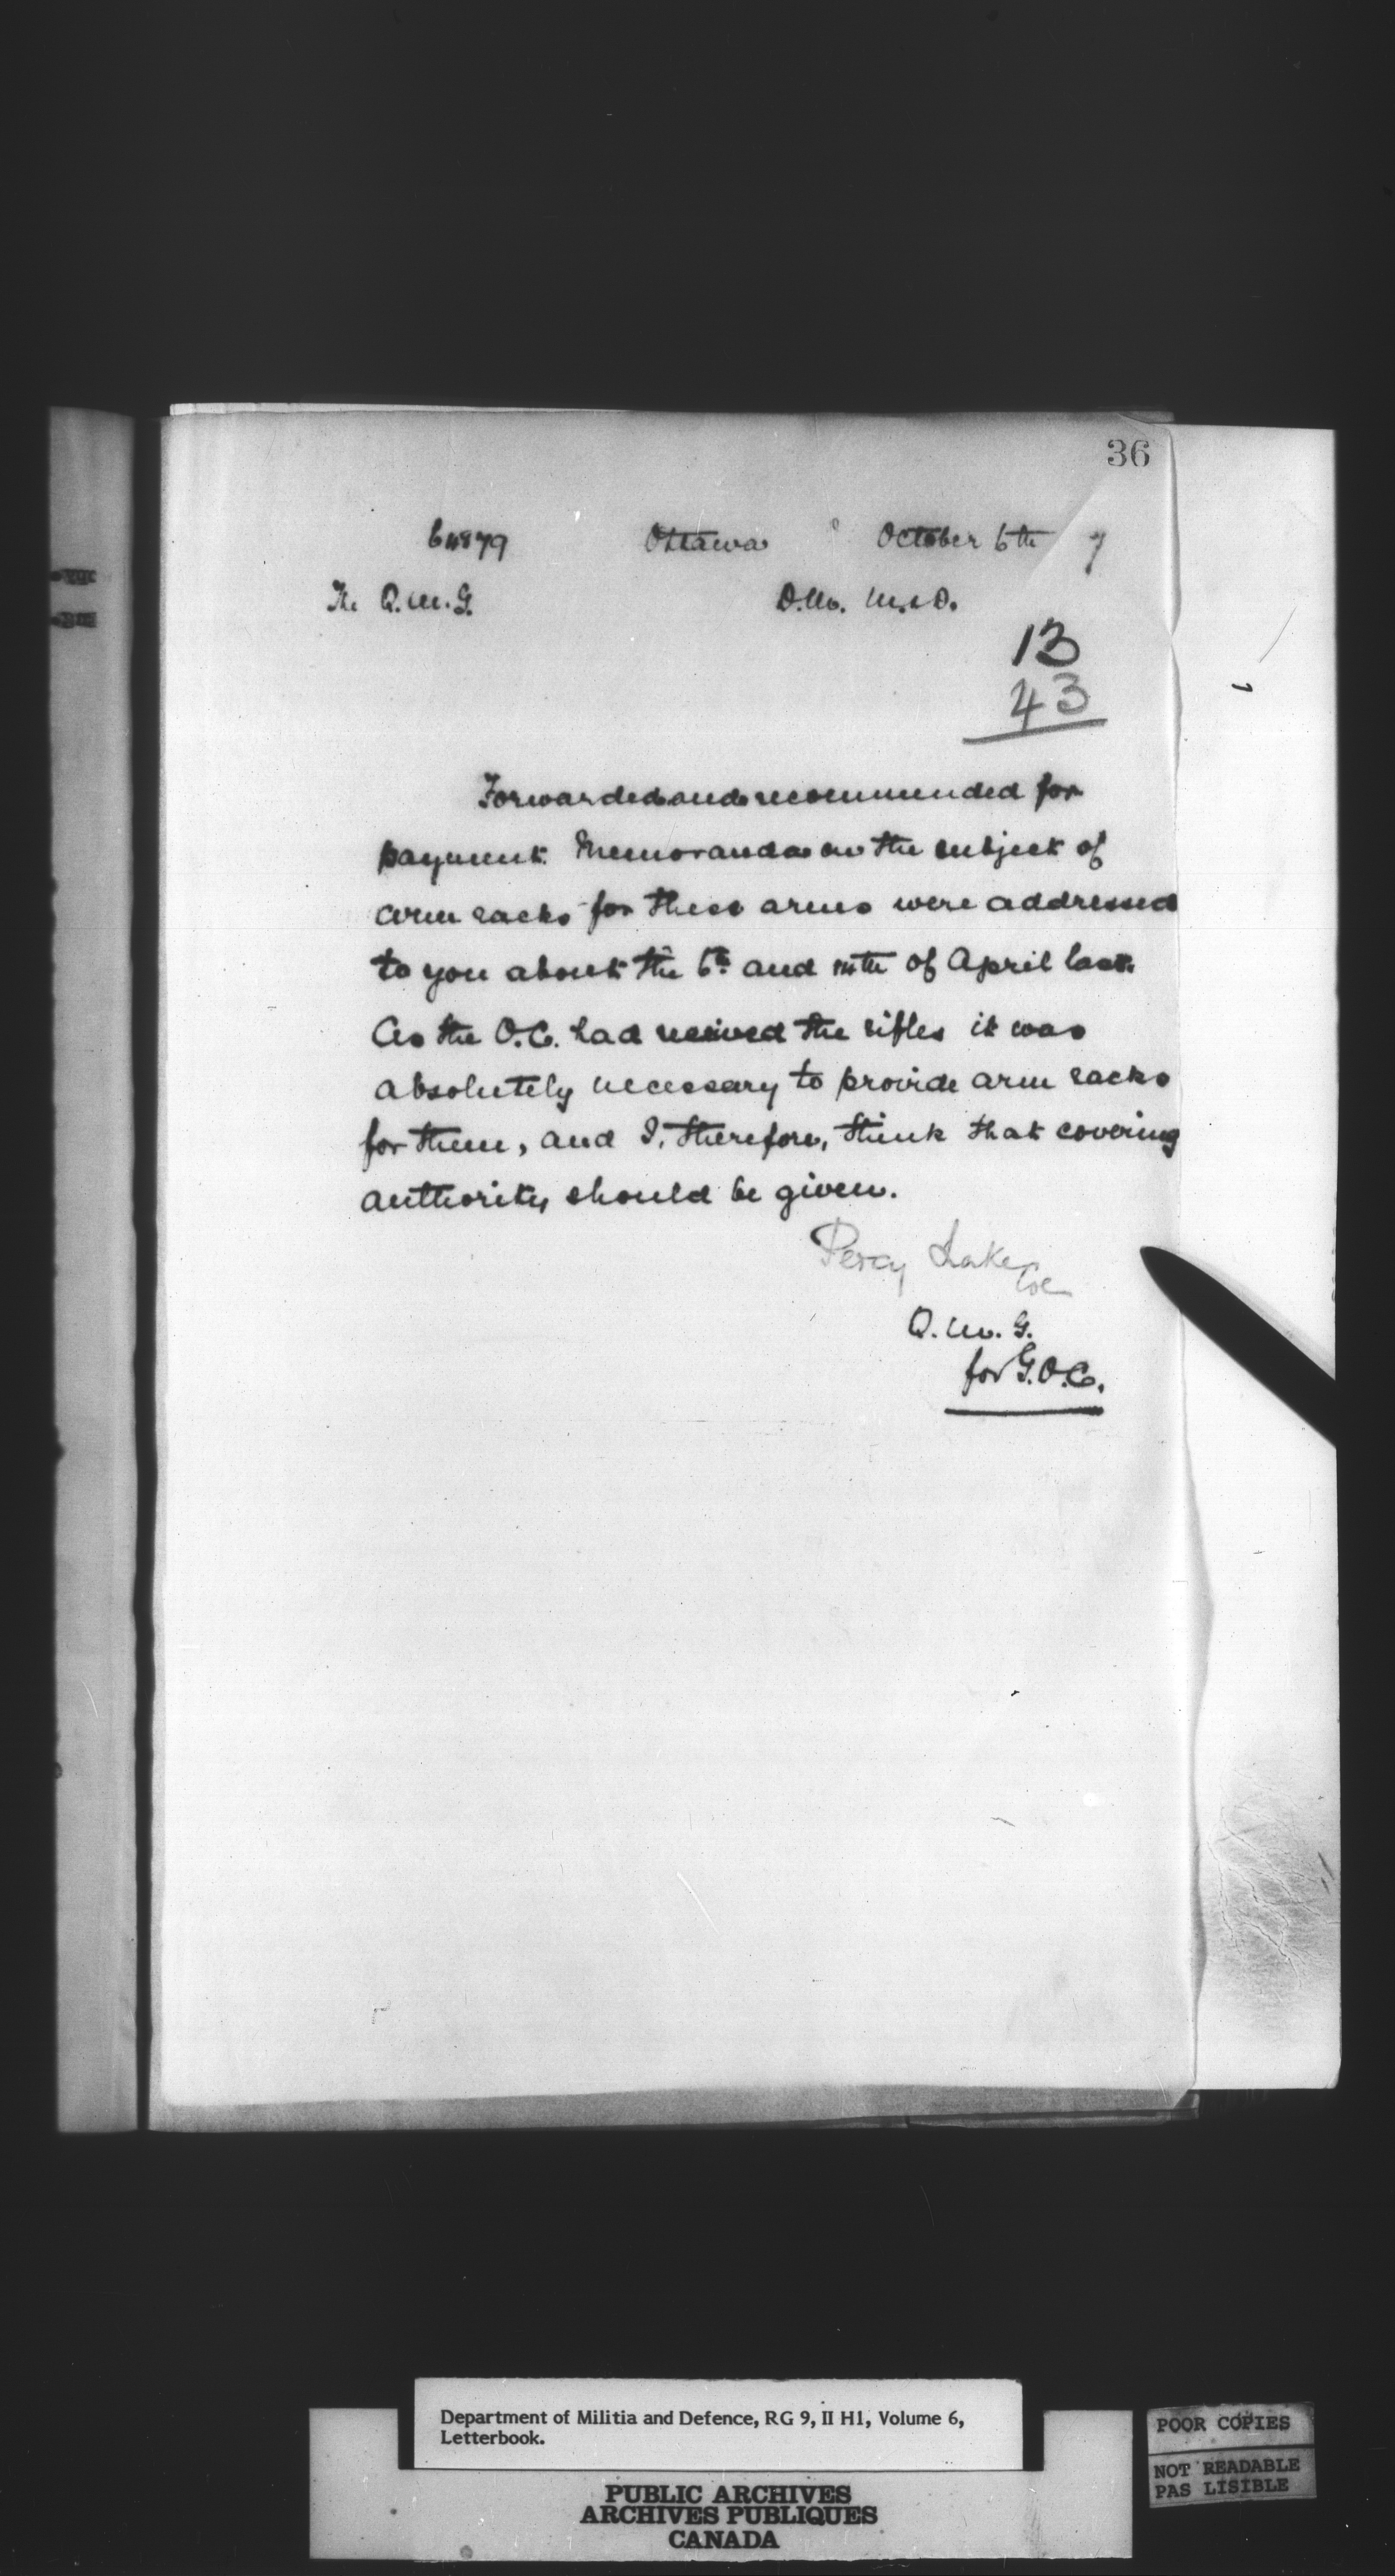 36
64879 Ottawa October 6th 7
The Q.M.G. D.M. M.&D.
13
43
Forwarded and recommended for
payment. Memoranda on the subject of
arm racks for these arms were addressed
to you about the 6th and 14th of April last.
As the O.C. had received the rifles it was
absolutely necessary to provide arm racks
for them, and I, therefore, think that covering
authority should be given.
Percy Lake
Col
Q.M.G.
for G.O.C.
Department of Militia and Defence, RG 9, II H1, Volume 6,
Letterbook.
PUBLIC ARCHIVES
ARCHIVES PUBLIQUES
CANADA
POOR COPIES
NOT READABLE
PAS LISIBLE